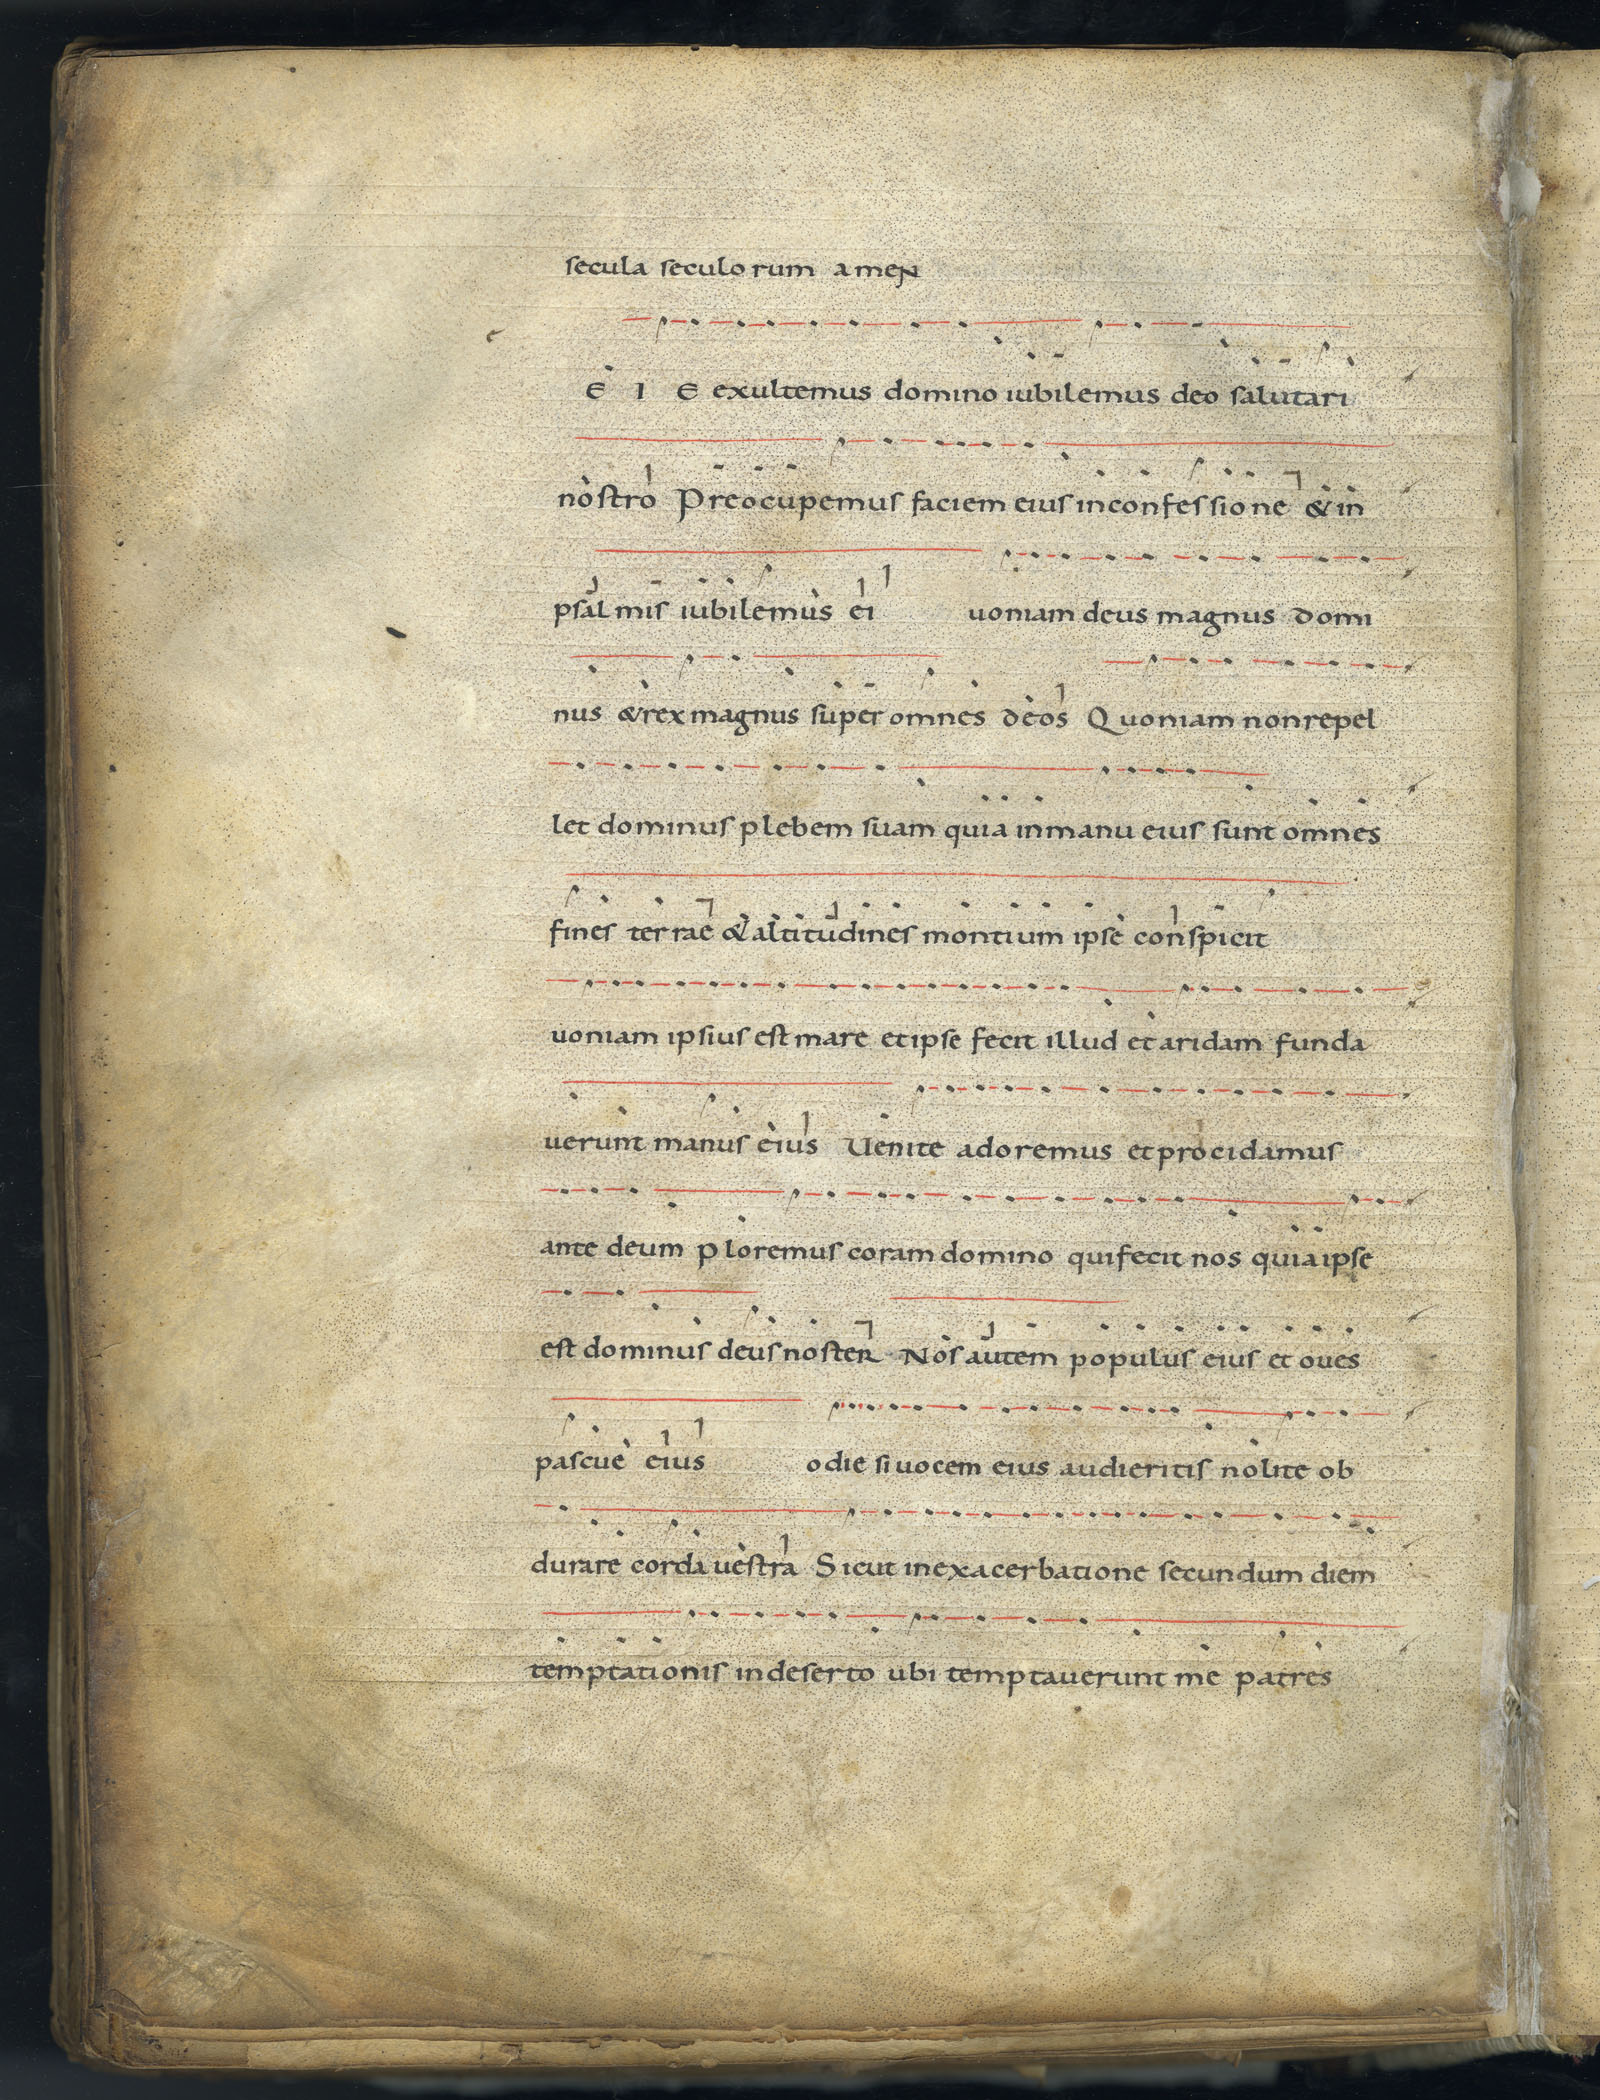 secula seculorum amen
E I E exultemus domino iubilemus deo salutari
nostro Preocupemus faciem eius inconfessione & in
psalmis iubilemus ei uoniam deus magnus domi
nus & rex magnus super omnes deos Quoniam non repel
let dominus plebem suam quia inmanu eius sunt omnes
fines terrae & altitudines montium ipse conspicit
uoniam ipsius est mare et ipse fecit illud et aridam funda
uerunt manus eius Uenite adoremus et procidamus
ante deum ploremus coram domino qui fecit nos quia ipse
est dominus deus noster Nos autem populus eius et oues
pascue eius odie si uocem eius audieritis nolite ob
durare corda uestra Sicut in exacerbatione secundum diem
temptationis in deserto ubi temptauerunt me patres